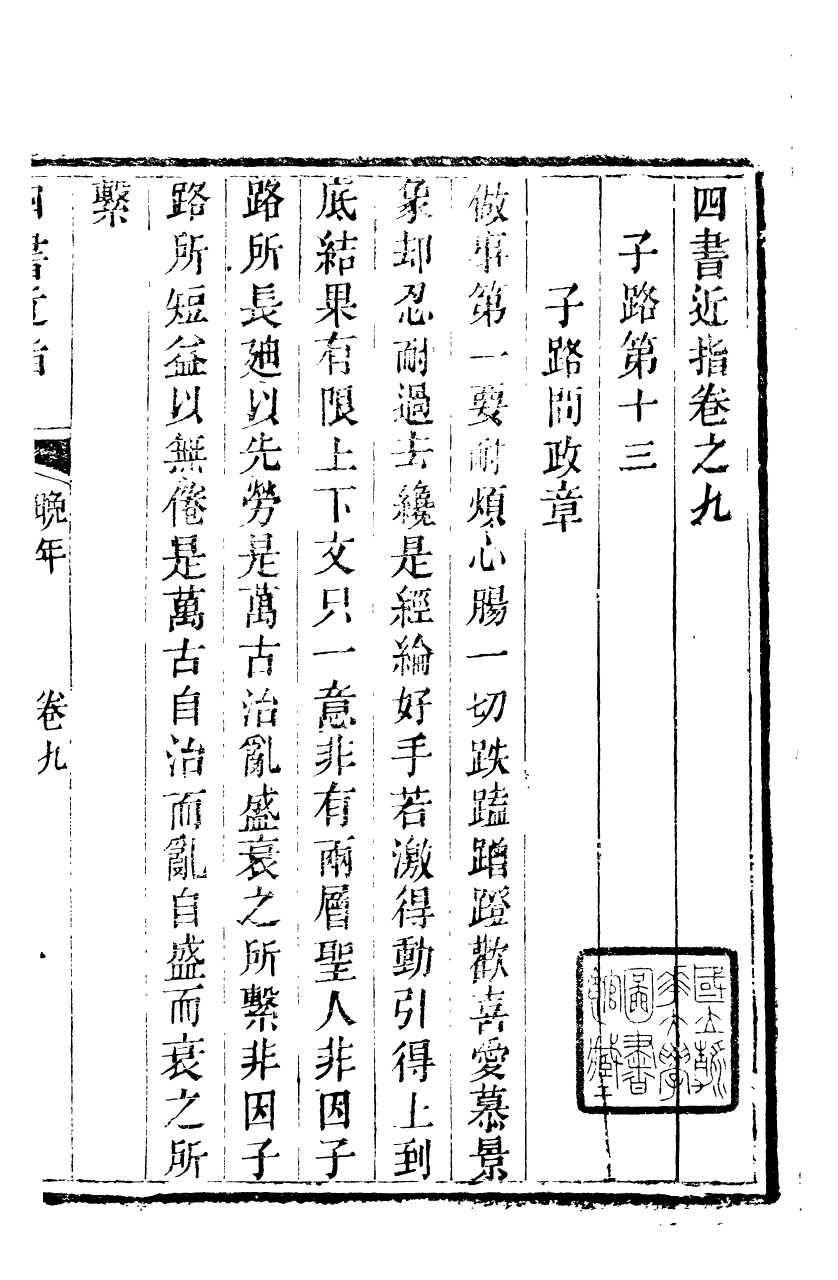 四書近指卷之九
子路第十三
子路問政章
做事第一要耐煩心腸一切跌蹅蹭蹬歡喜愛慕景
象却忍耐過去纔是經綸好手若激得動引得上到
底結果有限上下文只一意非有兩層聖人非因子
路所長廸以先勞是萬古治亂盛衰之所繫非因子
路所短益以無倦是萬古自治而亂自盛而衰之所
繫
四書近指
晚年
卷九
國立
大學
圖書
館藏